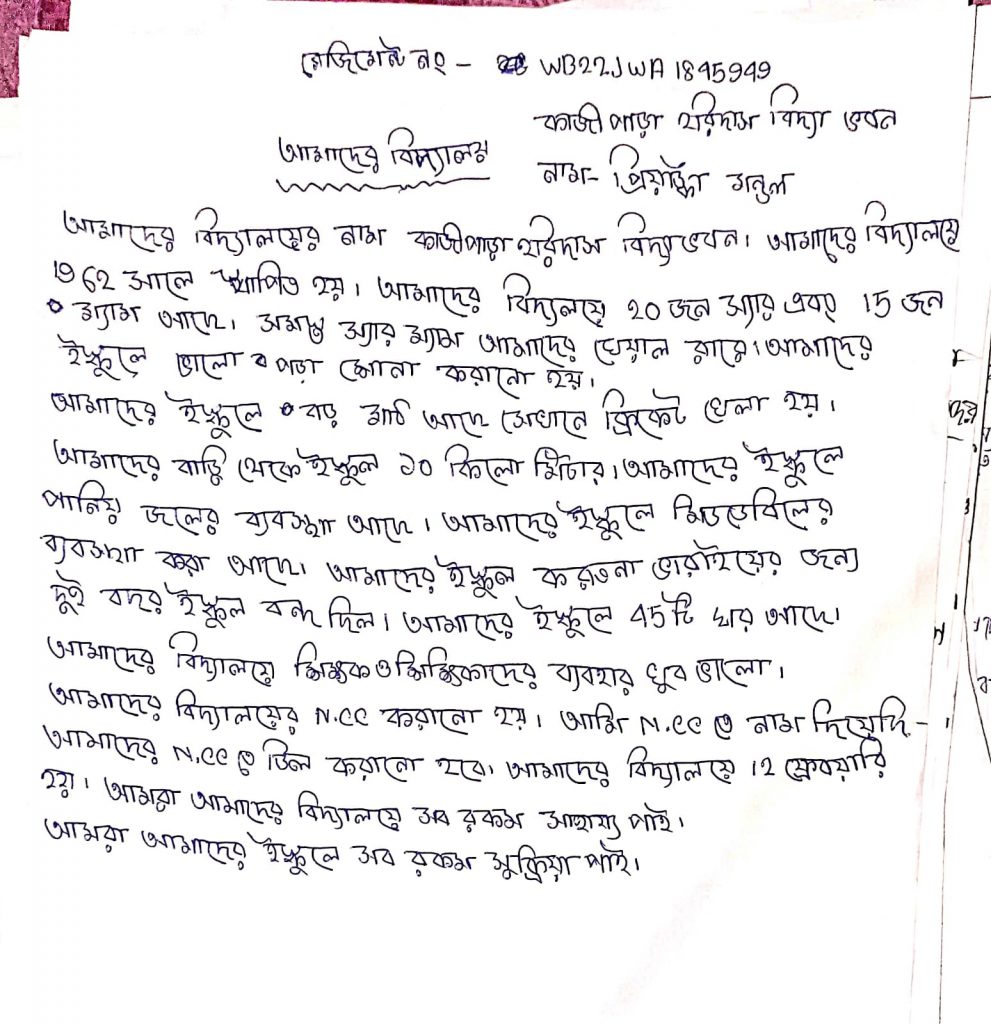 রেজিমেন্ট নং - WB22JWA1845949
কাজী পাড়া হরিদাস বিদ্যা ভবন
আমাদের বিদ্যালয়
নাম- প্রিয়াঙ্কা মন্ডল
আমাদের বিদ্যালয়ের নাম কাজীপাড়া হরিদাস বিদ্যাভবন। আমাদের বিদ্যালয়ে
1962 সালে স্থাপিত হয়। আমাদের বিদ্যলয়ে ২০ জন স্যার এবং 15 জন
ম্যাম আছে। সমস্ত স্যার ম্যাম আমাদের খেয়াল রাখে। আমাদের
ইস্কুলে ভালো পড়া শোনা করানো হয়।
আমাদের ইস্কুলে বড় মাঠ আছে সেখানে ক্রিকেট খেলা হয়।
আমাদের বাড়ি থেকে ইস্কুল ১০ কিলো মিটার। আমাদের ইস্কুলে
পানিয় জলের ব্যবস্থা আছে। আমাদের ইস্কুলে মিডডেবিলের
ব্যবস্থা করা আছে। আমাদের ইস্কুল করতনা ভারাইয়ের জন্য
দুই বছর ইস্কুল বন্দ ছিল। আমাদের ইস্কুলে 45টি ঘর আছে।
আমাদের বিদ্যালয়ে শিক্ষক ও শিক্ষিকাদের ব্যবহার খুব ভালো।
আমাদের বিদ্যালয়ের N.CC করানো হয়। আমি N.CC তে নাম দিয়েছি-
আমাদের N.CC তে ডিল করানো হবে। আমাদের বিদ্যালয়ে 12 ফ্রেবয়ারি
হয়। আমরা আমাদের বিদ্যালয়ে সব রকম সাহায্য পাই।
আমরা আমাদের ইস্কুলে সব রকম সুক্রিয়া পাই।